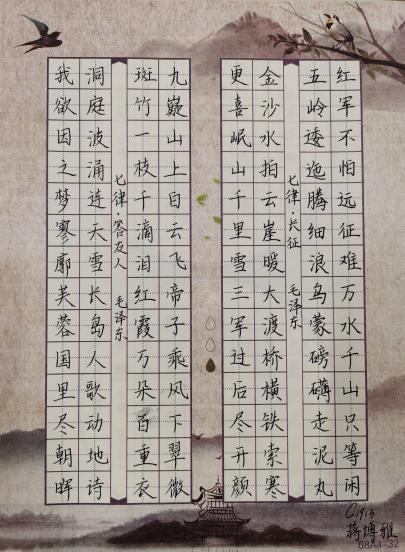 红军不怕远征难万水千山只等闲
五岭逶迤腾细浪乌蒙磅礴走泥丸
七律·长征 毛泽东
金沙水拍云崖暖大渡桥横铁索寒
更喜岷山千里雪三军过后尽开颜
九嶷山上白云飞帝子乘风下翠微
斑竹一枝千滴泪红霞万朵百重衣
七律·答友人 毛泽东
洞庭波涌连天雪长岛人歌动地诗
我欲因之梦寥廓芙蓉国里尽朝晖
C1913
蒋博雅
68A4-32